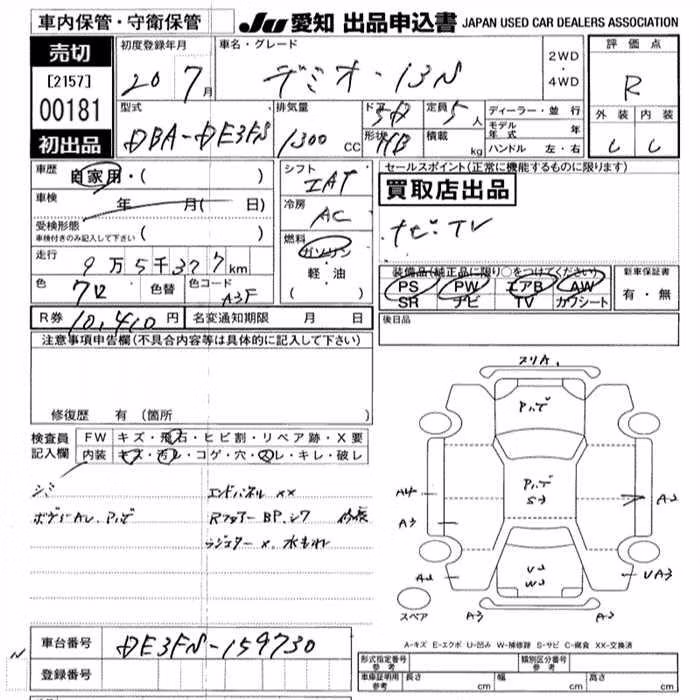 車内保管・守衛保管
JU 愛知 出品申込書 JAPAN USED CAR DEALERS ASSOCIATION
売切
[2157]
00181
初出品
初度登録年月
20 7月
車名・グレード
デミオ・13S
2WD
・
4WD
評価点
R
外装 内装
型式
DBA-DE3FS
排気量
1300 cc
ドア 5D
形状 HB
定員 5人
積載 kg
ディーラー・並行
モデル年式 年
ハンドル 左・右
車歴 自家用・( )
車検 年 月( 日)
受検形態
車検付きのみ記入して下さい ( )
走行 9万5千377km
色 クロ 色替 色コード A3F
R券 10,410円 名変通知期限 月 日
シフト IAT
冷房 AC
燃料
ガソリン
軽・油
( )
セールスポイント(正常に機能するものに限ります)
買取店出品
ナビ・TV
装備品(純正品に限り○をつけてください)
PS PW エアB AW
SR ナビ TV カワシート
新車保証書
有・無
後日品
注意事項申告欄(不具合内容等は具体的に記入して下さい)
修復歴 有 (箇所 )
検査員記入欄
FW キズ・飛石・ヒビ割・リペア跡・X要
内装 キズ・汚レ・コゲ・穴・スレ・キレ・破レ
エンドパネル XX
スリA
A4
A3
A2
A2
UA3
U2
W2
A3
A3
スペア
A-キズ E-エクボ U-凹み W-補修跡 S-サビ C-腐食 XX-交換済
車台番号 DE3FS-159730
登録番号
形式指定番号 参考
類別区分番号 参考
車庫証明用 参考 長さ cm 幅 cm 高さ cm